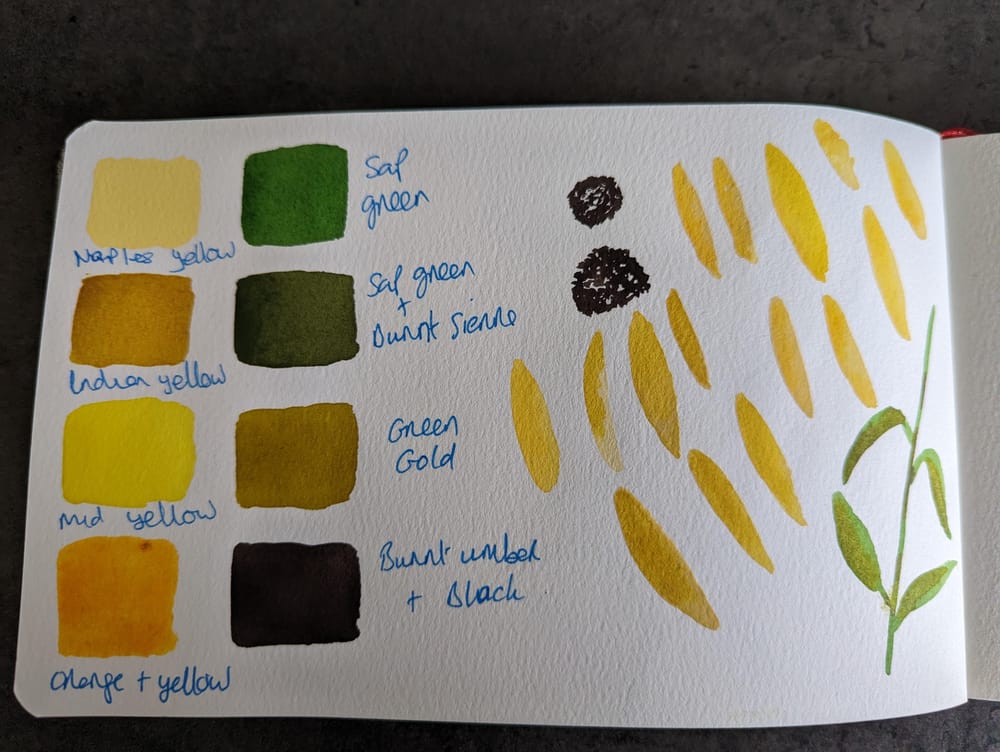 Naples yellow
Sap
green
Indian yellow
Sap green
+
Burnt Sienne
Mid yellow
Green
Gold
Orange + yellow
Burnt umber
+ Black